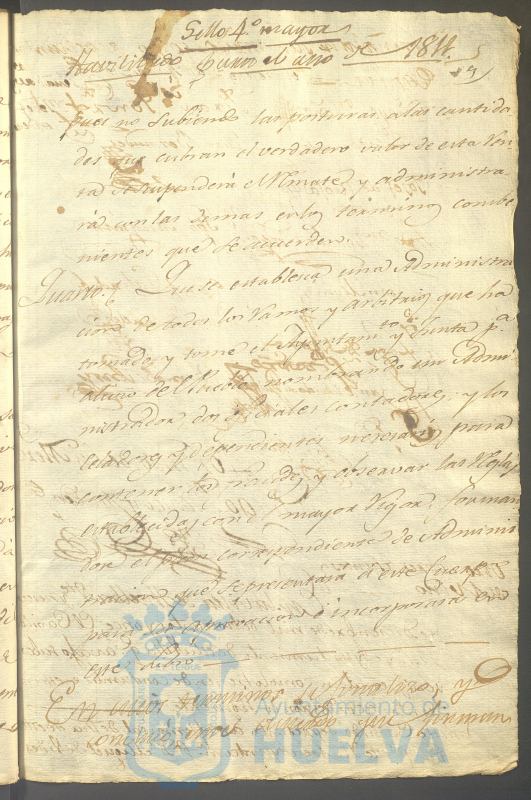 Sello 4.º mayor
Havilitado para el año de 1814.
pues no subiendo las posturas a las cantida
des que cubran el verdadero valor de esta Ven
ta se suspenderá el Rmate, y administra
rá con las demas en los terminos combe
nientes que se acuerden.
Quarto. Que se establesca una Administra
cion de todos los Ramos y arbitrios que ha
tomado, y tome el Ayuntam.to y Junta p.a
alivio del Pueblo nombrando un Admi
nistrador, dos oficiales contadores, y los
celadores y dependientes necesarios para
contener los fraudes, y observar las Reglas
establecidas con el mayor Rigor, forman
dose el correspondiente de Adminis
tracion que se presentará a este Cuerpo
para su aprovacion e incorporará en
este libro
En cuyos terminos se finalizó, y
Ayuntamiento de
HUELVA